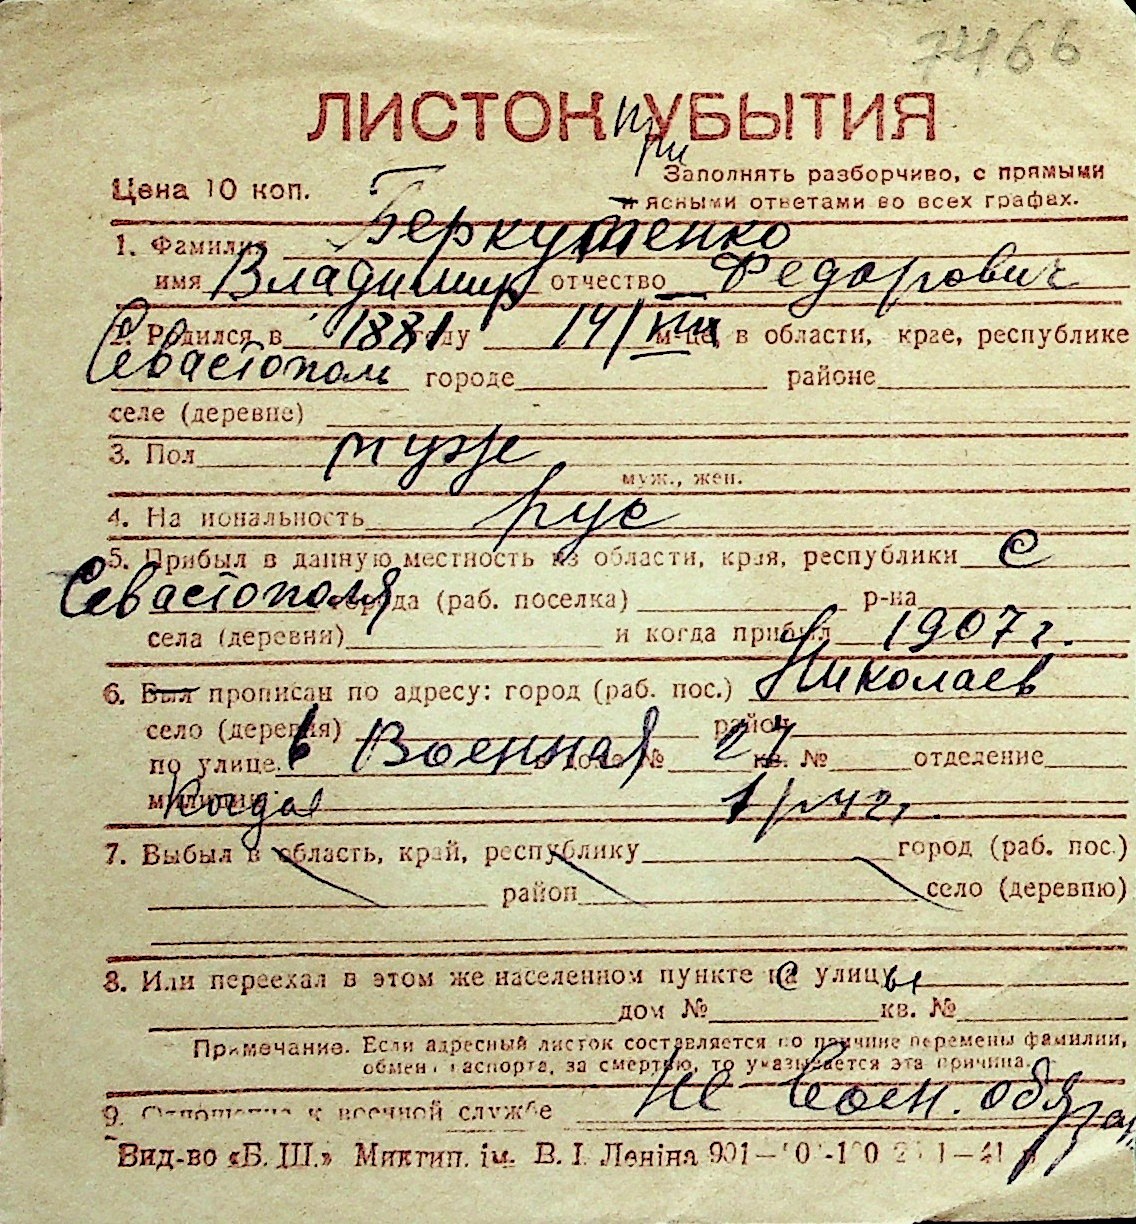 7466
ЛИСТОК при УБЫТИЯ
Цена 10 коп.
Заполнять разборчиво, с прямыми
и ясными ответами во всех графах.
1. Фамилия Беркутенко
имя Владимир отчество Федорович
2. Родился в 1881 году 14/VIII м-це, в области, крае, республике
Севастополь городе районе
селе (деревне)
3. Пол муж
муж., жен.
4. Национальность рус
5. Прибыл в данную местность из области, края, республики с
Севастополя города (раб. поселка) р-на
села (деревни) и когда прибыл 1907 г.
6. Был прописан по адресу: город (раб. пос.) Николаев
село (деревня) район
по улице в Военная дом № 24 кв. № отделение
милиции
7. Выбыл в область, край, республику город (раб. пос.)
район село (деревню)
8. Или переехал в этом же населенном пункте с улицы
дом № кв. №
Примечание. Если адресный листок составляется по причине перемены фамилии,
обмена паспорта, за смертью, то указывается эта причина.
9. Отношение к военной службе не воен. обязан
Вид-во «Б. Ш.» Миктип. ім. В. І. Леніна